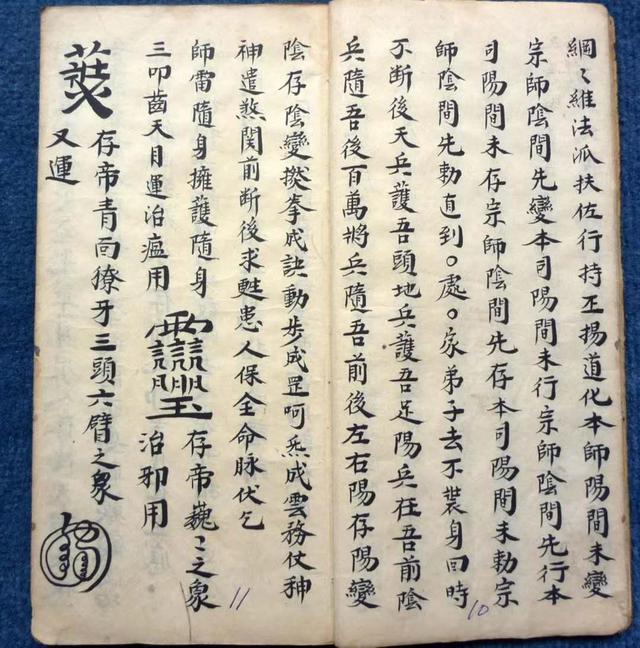 綱〻維法派扶佐行持丕揚道化本師陽間未變
宗師陰間先變本司陽間未行宗師陰間先行本
司陽間未存宗師陰間先存本司陽間未勅宗
師陰間先勅直到○處○家弟子去不裝身回時
不断後天兵護吾頭地兵護吾足陽兵在吾前陰
兵隨吾後百萬將兵隨吾前後左右陽存陽變
10
陰存陰變拳成訣動步成罡呵炁成雲務仗神
神遣煞関前断後求甦患人保全命脉伏乞
師雷隨身擁護隨身
三叩齒天目運治瘟用
存帝巍〻之象
治邪用
存帝青面獠牙三頭六臂之象
又運
11